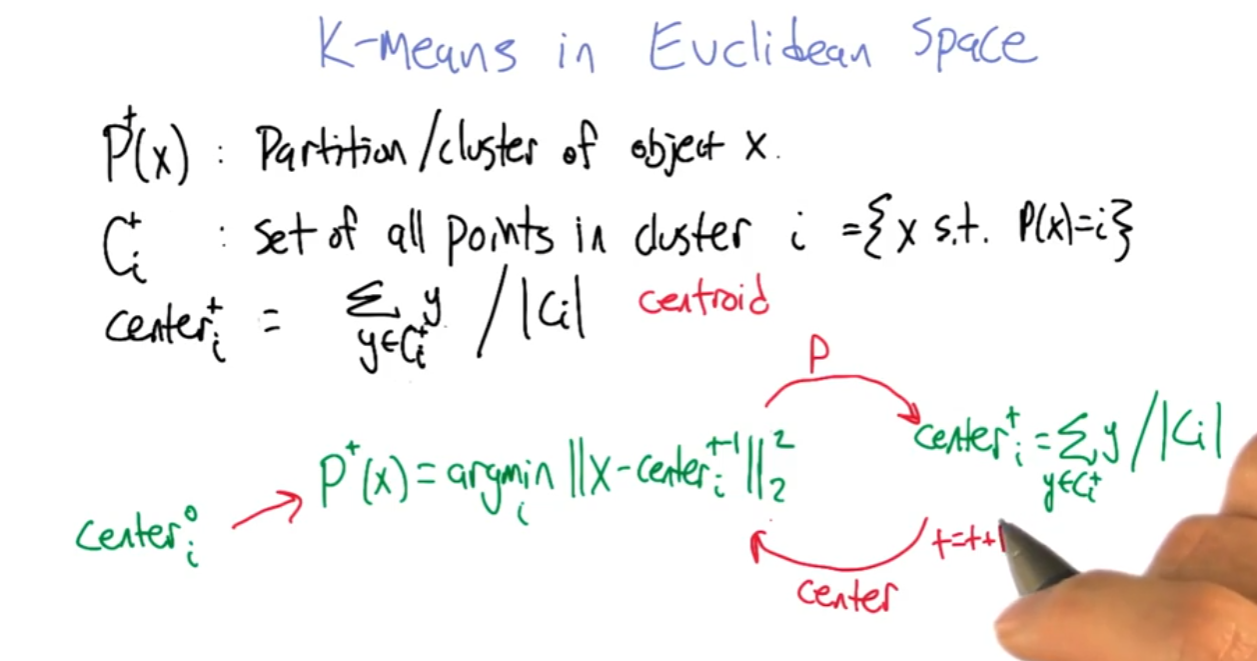 K-means in Euclidean Space
Pᵗ(x) : Partition/cluster of object x.
Cᵢᵗ : set of all points in cluster i = {x s.t. P(x)=i}
centerᵢᵗ = Σ_{y∈Cᵢᵗ} y / |Cᵢ| centroid
P
Pᵗ(x) = argmin_i ||x - centerᵢᵗ⁻¹||₂²
centerᵢᵗ = Σ_{y∈Cᵢᵗ} y / |Cᵢ|
centerᵢ⁰
t=t+1
center